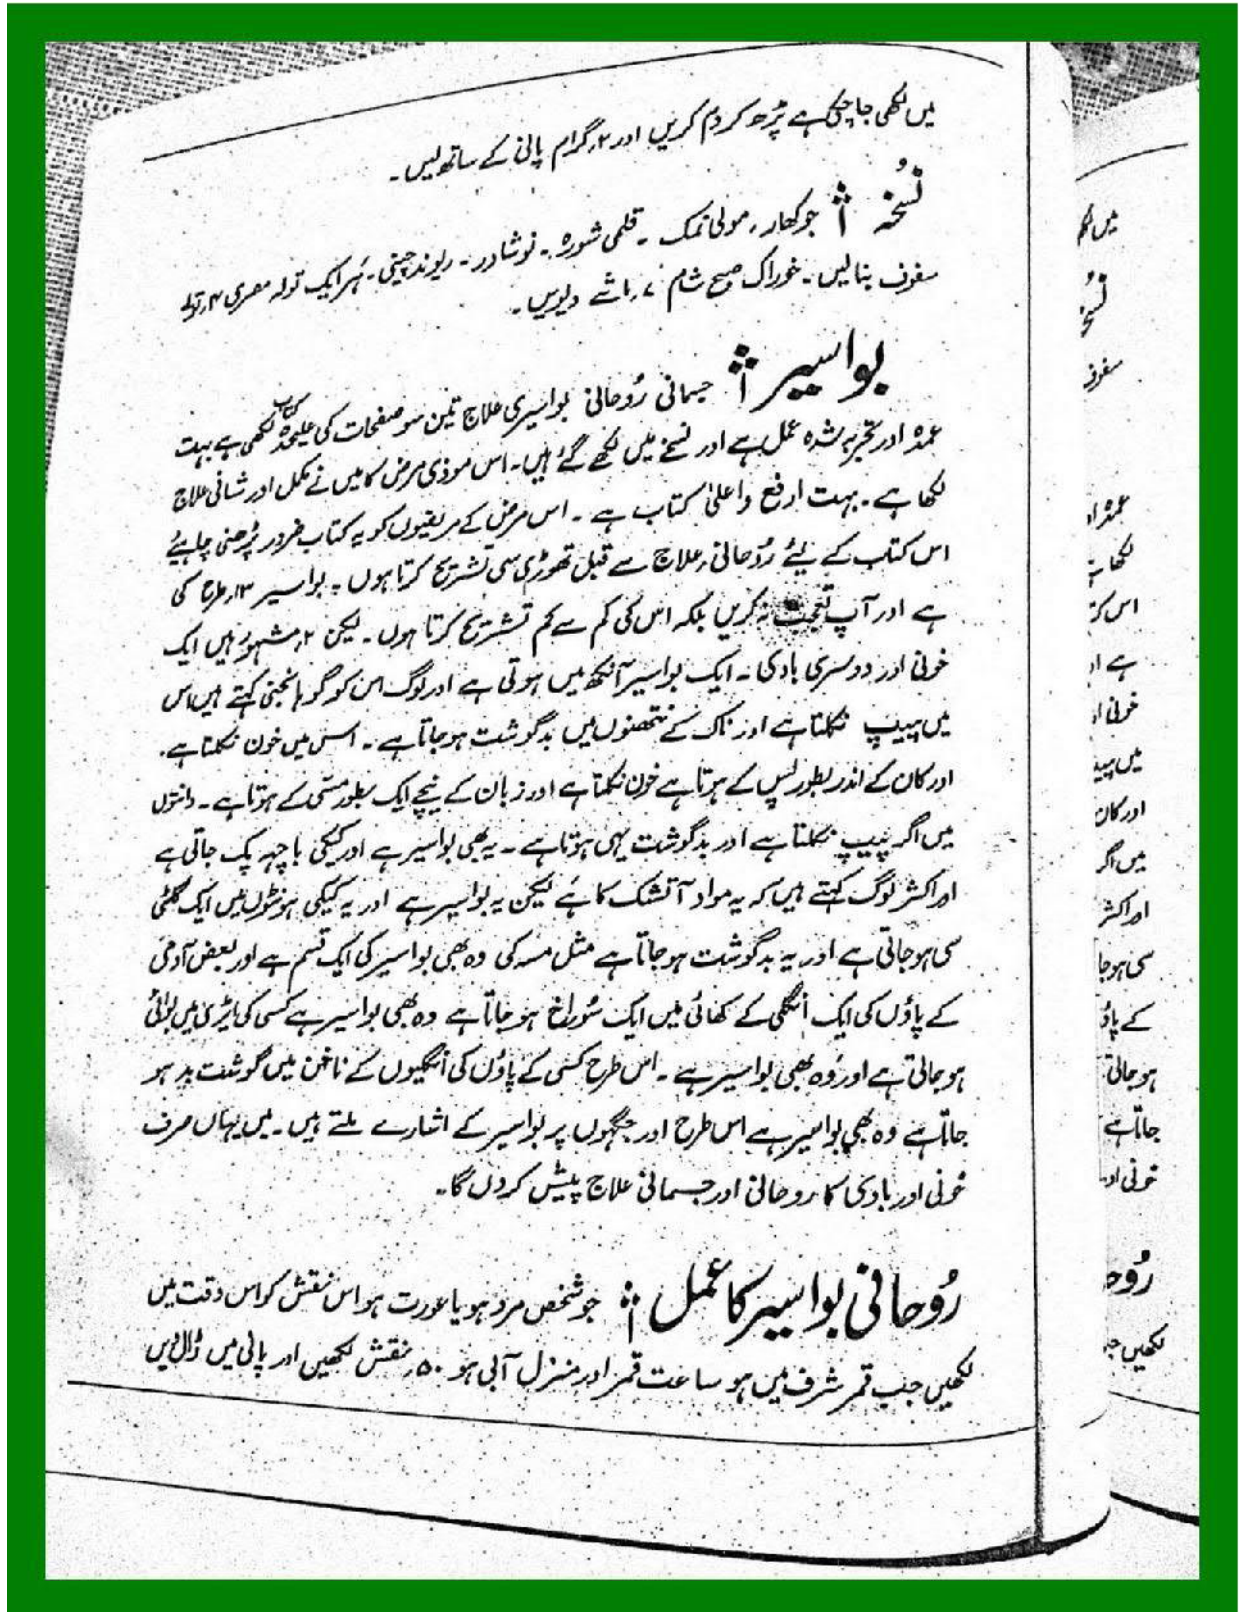 میں لکھی جاچکی ہے پڑھ کر دم کریں اور ۲ گرام پانی کے ساتھ لیں۔
نسخہ
جوکھار، مولی نمک ۔ قلمی شورہ ۔ نوشادر ۔ ریوند چینی ۔ ہر ایک تولہ مصری ۴ تولے
سفوف بنالیں ۔ خوراک صبح شام ۷ ماشے دیویں ۔
بواسیر
جسمانی رُوحانی بواسیری علاج تین سو صفحات کی علیحدہ کتاب لکھی ہے بہت
عمدہ اور تجربہ شدہ عمل ہے اور نسخے میں لکھے گئے ہیں۔ اس موذی مرض کا میں نے مکمل اور شافی علاج
لکھا ہے ۔ بہت ارفع واعلیٰ کتاب ہے ۔ اس مرض کے مریضوں کو یہ کتاب ضرور پڑھنی چاہیئے
اس کتاب کے لئے رُوحانی علاج سے قبل تھوڑی سی تشریح کرتا ہوں ۔ بواسیر ۱۳ طرح کی
ہے اور آپ تعجب نہ کریں بلکہ اس کی کم سے کم تشریح کرتا ہوں ۔ لیکن ۲ مشہور ہیں ایک
خونی اور دوسری بادی ۔ ایک بواسیر آنکھ میں ہوتی ہے اور لوگ اس کو گوہانجنی کہتے ہیں اس
میں پیپ نکلتا ہے اور ناک کے نتھنوں میں بدگوشت ہوجاتا ہے ۔ اس میں خون نکلتا ہے۔
اور کان کے اندر بطور لپس کے ہوتا ہے خون نکلتا ہے اور زبان کے نیچے ایک بطور مسّی کے ہوتا ہے ۔ دانتوں
میں اگر پیپ نکلتا ہے اور بدگوشت یہی ہوتا ہے ۔ یہ بھی بواسیر ہے اور کیکی باچہہ پک جاتی ہے
اور اکثر لوگ کہتے ہیں کہ یہ مواد آتشک کا ہے لیکن یہ بواسیر ہے اور یہ کیکی ہونٹوں میں ایک گلٹی
سی ہوجاتی ہے اور یہ بدگوشت ہوجاتا ہے مثل مسہ کی وہ بھی بواسیر کی ایک قسم ہے اور بعض آدمی
کے پاؤں کی ایک انگلی کے کھائی میں ایک سُوراخ ہوجاتا ہے وہ بھی بواسیر ہے کسی کی ایڑی میں
ہوجاتی ہے اور وُہ بھی بواسیر ہے ۔ اس طرح کسی کے پاؤں کی انگلیوں کے ناخن میں گوشت بد ہو
جاتا ہے وہ بھی بواسیر ہے اس طرح اور جگہوں پر بواسیر کے اشارے ملتے ہیں ۔ میں یہاں صرف
خونی اور بادی کا روحانی اور جسمانی علاج پیش کروں گا۔
رُوحانی بواسیر کا عمل
جو شخص مرد ہو یا عورت ہو اس نقش کو اس وقت میں
لکھیں جب قمر شرف میں ہو ساعت قمر اور منزل آبی ہو ۵۰ نقش لکھیں اور پانی میں ڈال دیں
میں لکھ
نسخہ
سفوف
لکھا ہے
ہے او
خونی او
میں پیپ
اور کان
میں اگر
اور اکثر
سی ہوجا
کے پاؤ
ہوجاتی
جاتا ہے
خونی اور
رُوح
لکھیں جب